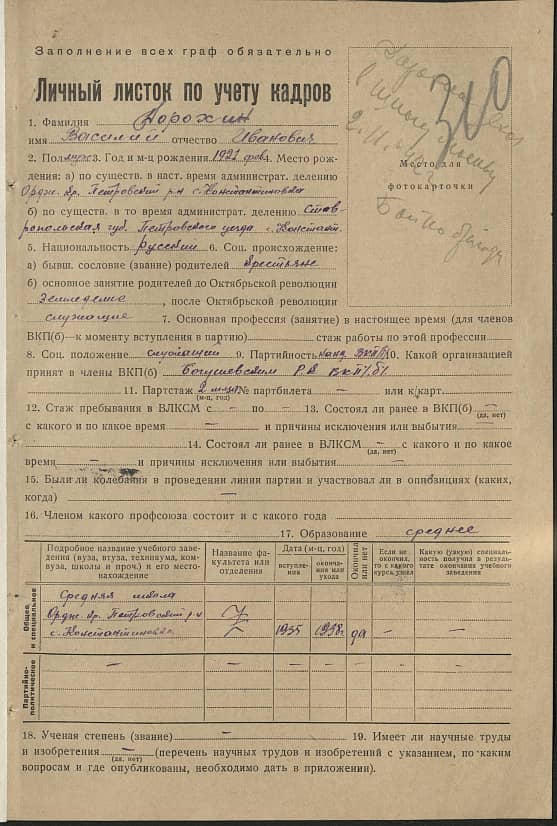 Заполнение всех граф обязательно
Личный листок по учету кадров
1. Фамилия Дорохин
имя Василий отчество Иванович
2. Пол муж 3. Год и м-ц рождения 1922 февр 4. Место рож-
дения: а) по существ. в наст. время администрат. делению
Ордж. кр. Петровский р-н с. Константиновка
б) по существ. в то время администрат. делению Став-
ропольская губ. Петровского уезда с. Констант.
5. Национальность Русский 6. Соц. происхождение:
а) бывш. сословие (звание) родителей Крестьяне
б) основное занятие родителей до Октябрьской революции
Земледелие, после Октябрьской революции
служащие 7. Основная профессия (занятие) в настоящее время (для членов
ВКП(б)—к моменту вступления в партию) стаж работы по этой профессии
8. Соц. положение служащий 9. Партийность канд. ВКП(б) 10. Какой организацией
принят в члены ВКП(б) Р.К ВКП(б)
11. Партстаж 2 № партбилета — или к/карт.
(м-ц, год)
12. Стаж пребывания в ВЛКСМ с — по — 13. Состоял ли ранее в ВКП(б) —
(да, нет)
с какого и по какое время — и причины исключения или выбытия
14. Состоял ли ранее в ВЛКСМ — с какого и по какое
(да, нет)
время — и причины исключения или выбытия —
15. Были ли колебания в проведении линии партии и участвовал ли в оппозициях (каких,
когда) —
16. Членом какого профсоюза состоит и с какого года
17. Образование среднее
Подробное название учебного заве-
дения (вуза, втуза, техникума, ком-
вуза, школы и проч.) и его место-
нахождение
Название фа-
культета или
отделения
Дата (м-ц, год)
вступле-
ния
оконча-
ния или
ухода
Окончил
или нет
Если не
окончил,
то с какого
курса ушел
Какую (узкую) специаль-
ность получил в резуль-
тате окончания учебного
заведения
Общее
и специальное
Средняя школа
Ордж. кр. Петровский р-н
с. Константиновка 1935 1938г да — —
Партийно-
политическое
— — — — — — —
18. Ученая степень (звание) — 19. Имеет ли научные труды
и изобретения — (перечень научных трудов и изобретений с указанием, по каким
(да, нет)
вопросам и где опубликованы, необходимо дать в приложении).
Место для
фотокарточки